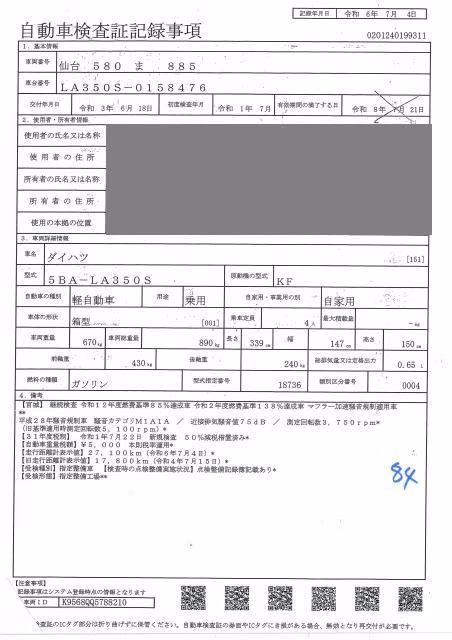 記録年月日 令和 6年 7月 4日
自動車検査証記録事項
0201240199311
1．基本情報
車両番号 仙台 580 ま 885
車台番号 LA350S－0158476
交付年月日 令和 3年 6月 18日 初度検査年月 令和 1年 7月 有効期間の満了する日 令和 8年 7月 21日
2．使用者・所有者情報
使用者の氏名又は名称
使用者の住所
所有者の氏名又は名称
所有者の住所
使用の本拠の位置
3．車両詳細情報
車名 ダイハツ [151]
型式 5BA－LA350S 原動機の型式 KF
自動車の種別 軽自動車 用途 乗用 自家用・事業用の別 自家用
車体の形状 箱型 [001] 乗車定員 4人 最大積載量 －kg
車両重量 670kg 車両総重量 890kg 長さ 339cm 幅 147cm 高さ 150cm
前軸重 430kg 後軸重 240kg 総排気量又は定格出力 0.65 L
燃料の種類 ガソリン 型式指定番号 18736 類別区分番号 0004
4．備考
【宮城】 継続検査 令和12年度燃費基準85％達成車 令和2年度燃費基準138％達成車 マフラー加速騒音規制適用車
**
平成28年騒音規制車 騒音カテゴリM1A1A ／ 近接排気騒音値75dB ／ 測定回転3，750rpm*
（旧基準適用時測定回転数5，100rpm）*
【31年度税制】 令和1年7月22日 新規検査 50％減税措置済み*
【自動車重量税額】¥5，000 本則税率適用*
【走行距離計表示値】27，100km（令和6年7月4日）*
【旧走行距離計表示値】17，800km（令和4年7月15日）*
【受検種別】指定整備車 【検査時の点検整備実施状況】点検整備記録簿記載あり*
【受検形態】指定整備工場**
84
【注意事項】
記録事項はシステム登録時点の情報となります
車両ID K9568QQ5788210
検査証のICタグ部分は折り曲げずに保管ください。自動車検査証の券面やICタグにき損がある場合、無効となり再交付が必要です。